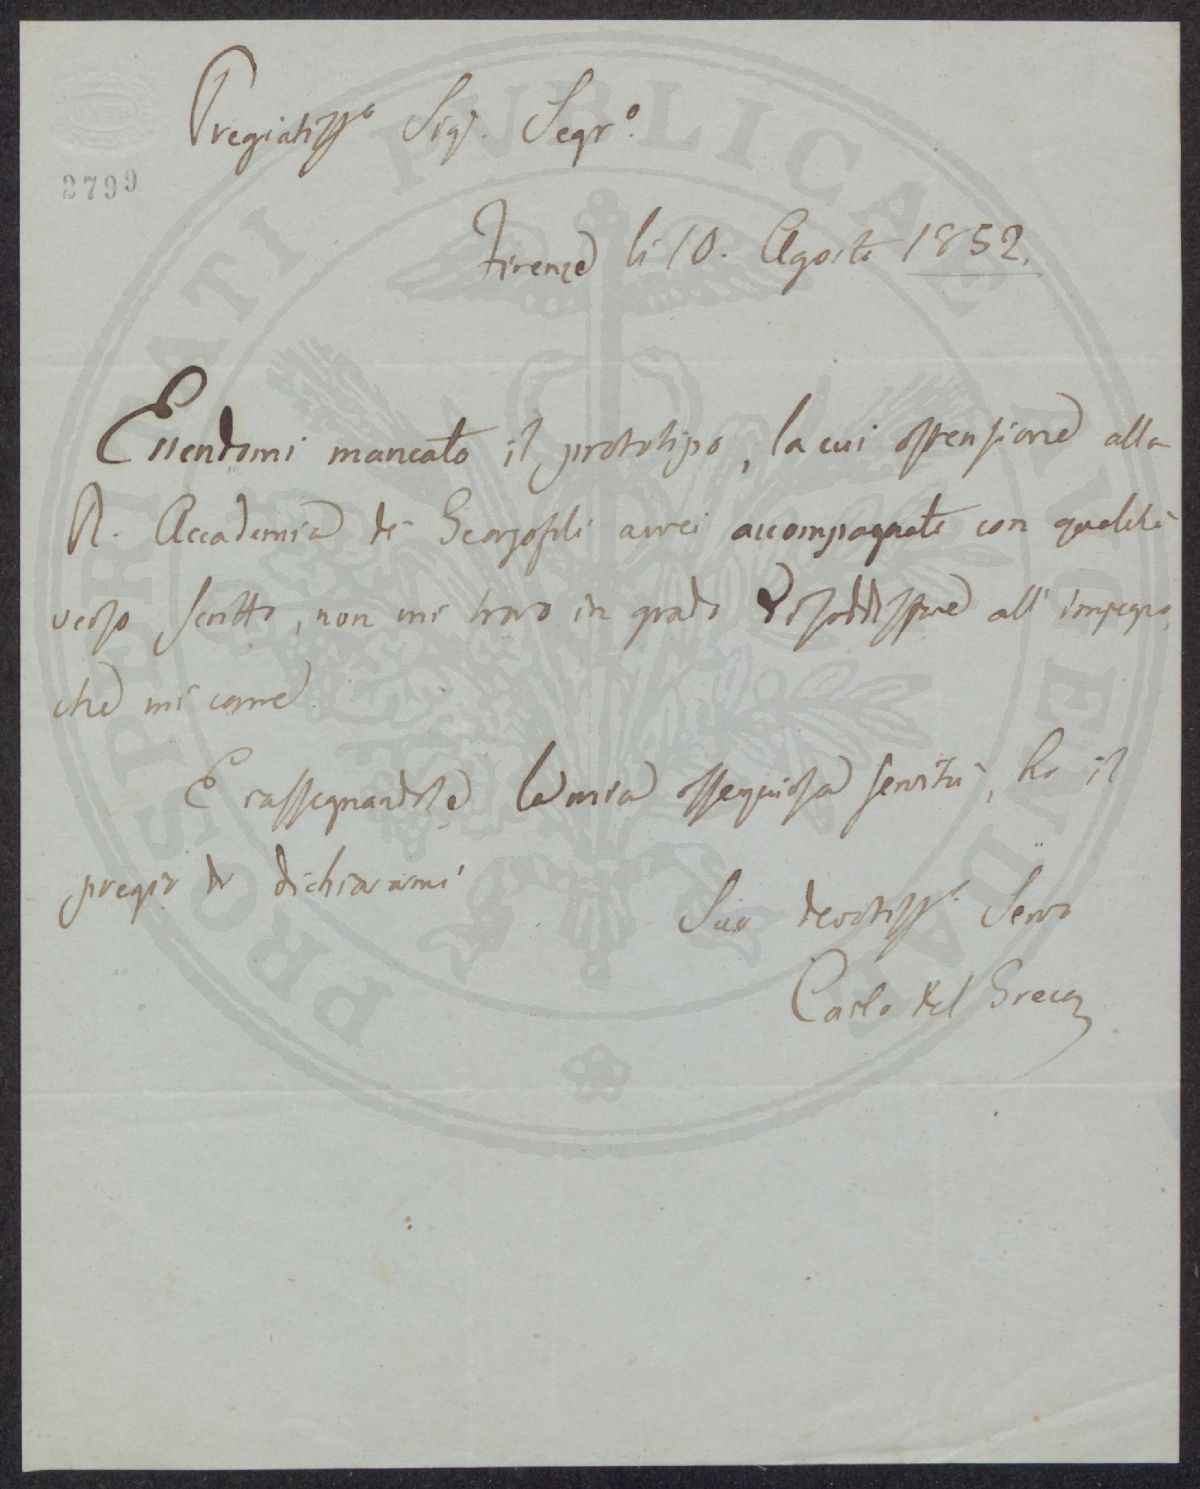 2799
Pregiatiss.o Sig.r Segr.o
Firenze li 10. Agosto 1852.
Essendomi mancato il prototipo, la cui ostensione alla
R. Accademia de' Georgofili avrei accompagnato con qualche
verso scritto, non mi trovo in grado di soddisfare all' impegno,
che mi corre.
E rassegnandole la mia ossequiosa servitù, ho il
pregio di dichiararmi
Suo devotiss.o Servo
Carlo del Greco
PROSPERITATI PUBLICAE AUGENDAE